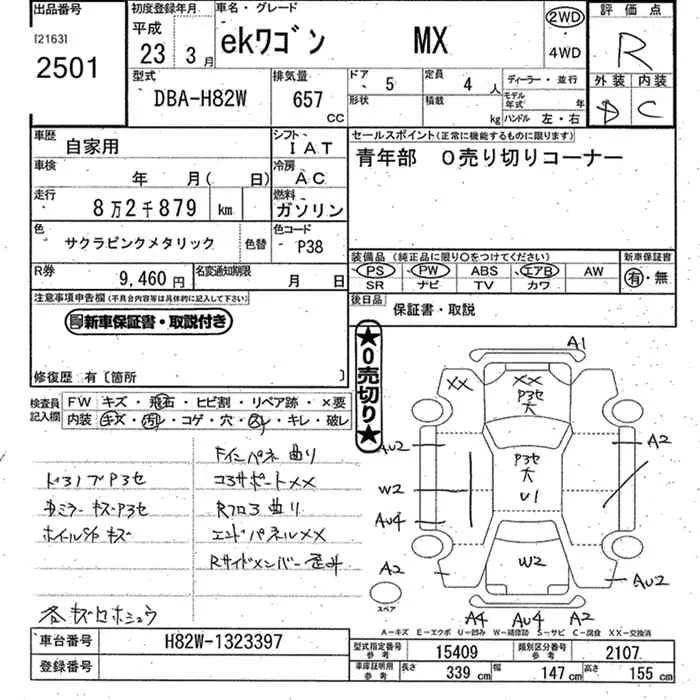 出品番号
[2163]
2501
初度登録年月
平成
23 3月
車名・グレード
ekワゴン MX
2WD
・
4WD
評価点
R
外装 内装
D C
型式
DBA-H82W
排気量
657
CC
ドア 5
形状
定員 4人
積載 kg
ディーラー・並行
モデル年式 年
ハンドル 左・右
車歴 自家用
シフト IAT
車検 年 月( 日)
冷房 AC
走行 8万2千879 km
燃料 ガソリン
色 サクラピンクメタリック
色替
色コード P38
R券 9,460円
名変通知期限 月 日
セールスポイント(正常に機能するものに限ります)
青年部 0売り切りコーナー
装備品(純正品に限り○をつけてください)
PS PW ABS エアB AW
SR ナビ TV カワ
新車保証書
有・無
後日品
保証書・取説
注意事項申告欄(不具合内容等は具体的に記入して下さい)
新車保証書・取説付き
修復歴 有〔箇所 〕
★0売切り★
検査員記入欄
FW キズ・飛石・ヒビ割・リペア跡・×要
内装 キズ・汚レ・コゲ・穴・スレ・キレ・破レ
Fインパネ曲り
ドヨノブP3セ
コアサポートXX
カミラーキズ・P3セ
Rフロア曲り
ホイルS/Pキズ
エンドパネルXX
Rサイドメンバー歪み
各キズセホシュウ
A1
XX
XX
P3セ
大
AU2
A2
P3セ
大
U1
W2
AU4
W2
A2
AU2
A4 AU4 A2
スペア
A-キズ E-エクボ U-凹み W-補修跡 S-サビ C-腐食 XX-交換済
車台番号 H82W-1323397
登録番号
型式指定番号 参考 15409
類別区分番号 参考 2107
車庫証明用 参考
長さ 339 cm
幅 147 cm
高さ 155 cm